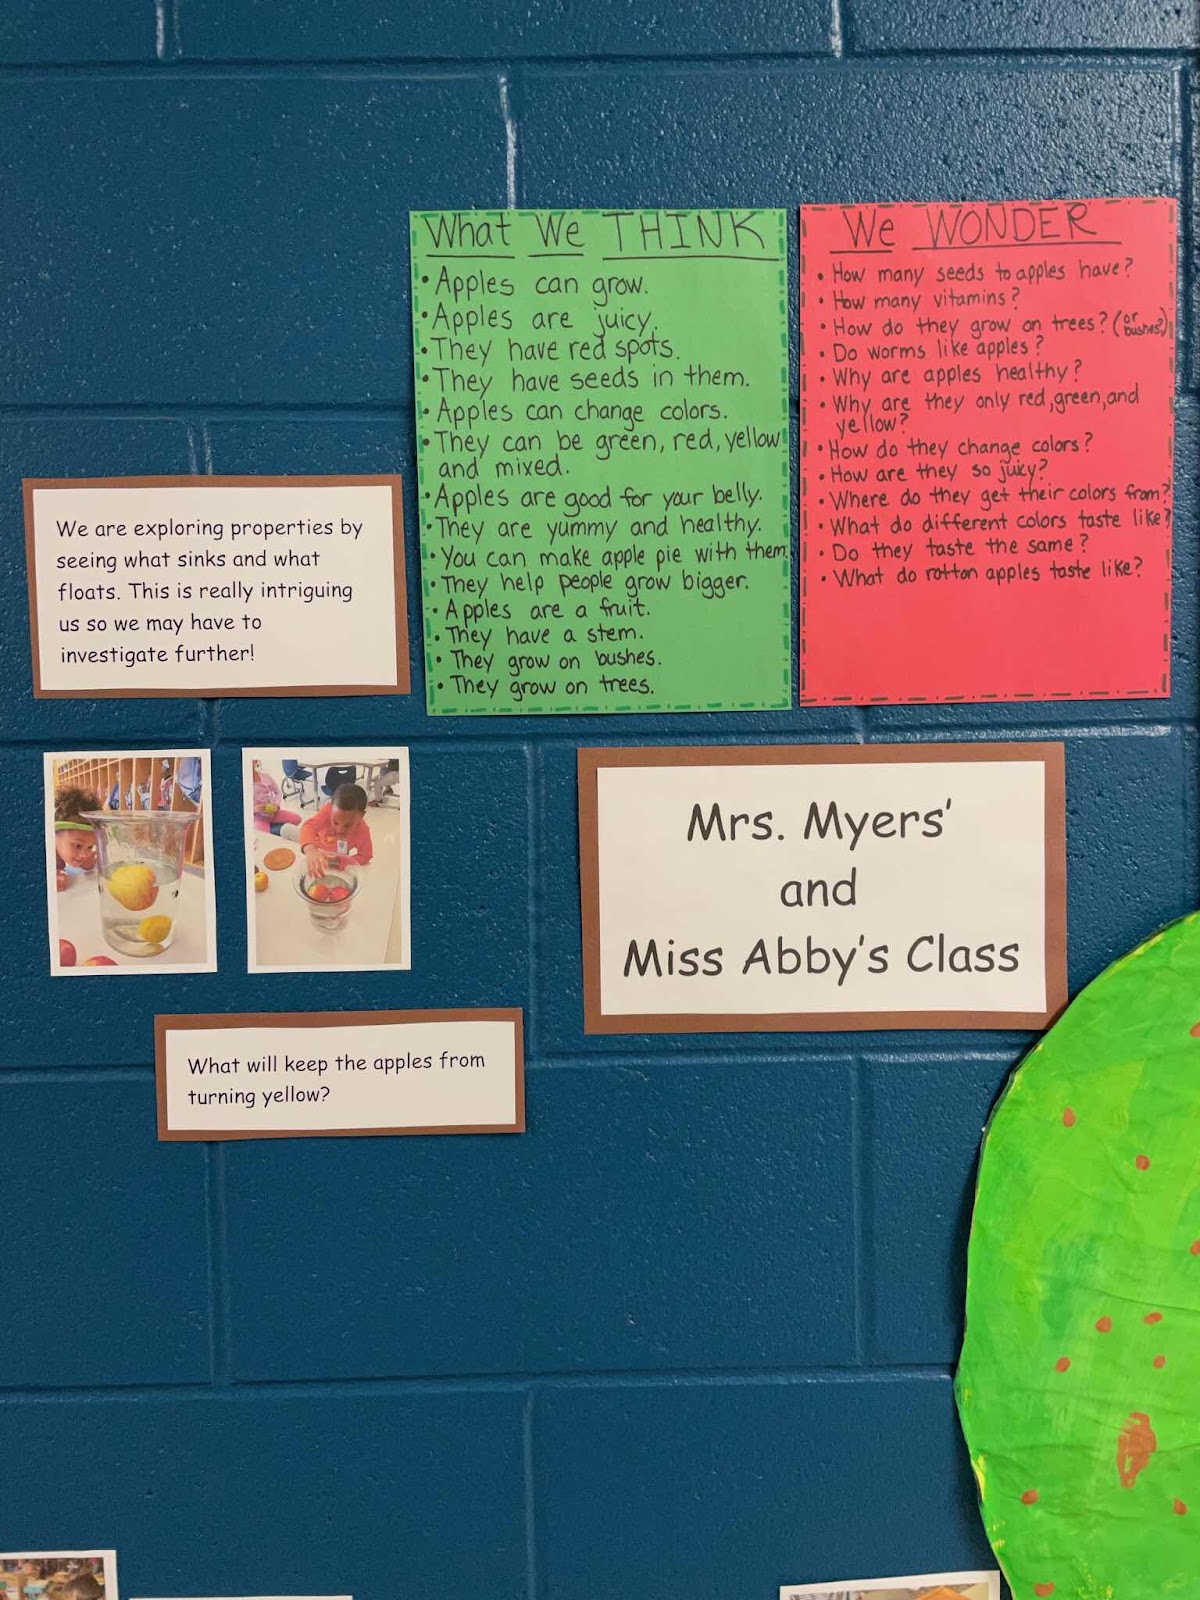 What We THINK
• Apples can grow.
• Apples are juicy.
• They have red spots.
• They have seeds in them.
• Apples can change colors.
• They can be green, red, yellow
and mixed.
• Apples are good for your belly.
• They are yummy and healthy.
• You can make apple pie with them.
• They help people grow bigger.
• Apples are a fruit.
• They have a stem.
• They grow on bushes.
• They grow on trees.
We WONDER
• How many seeds to apples have?
• How many vitamins?
• How do they grow on trees? (or bushes?)
• Do worms like apples?
• Why are apples healthy?
• Why are they only red, green, and
yellow?
• How do they change colors?
• How are they so juicy?
• Where do they get their colors from?
• What do different colors taste like?
• Do they taste the same?
• What do rotton apples taste like?
We are exploring properties by
seeing what sinks and what
floats. This is really intriguing
us so we may have to
investigate further!
Mrs. Myers'
and
Miss Abby's Class
What will keep the apples from
turning yellow?